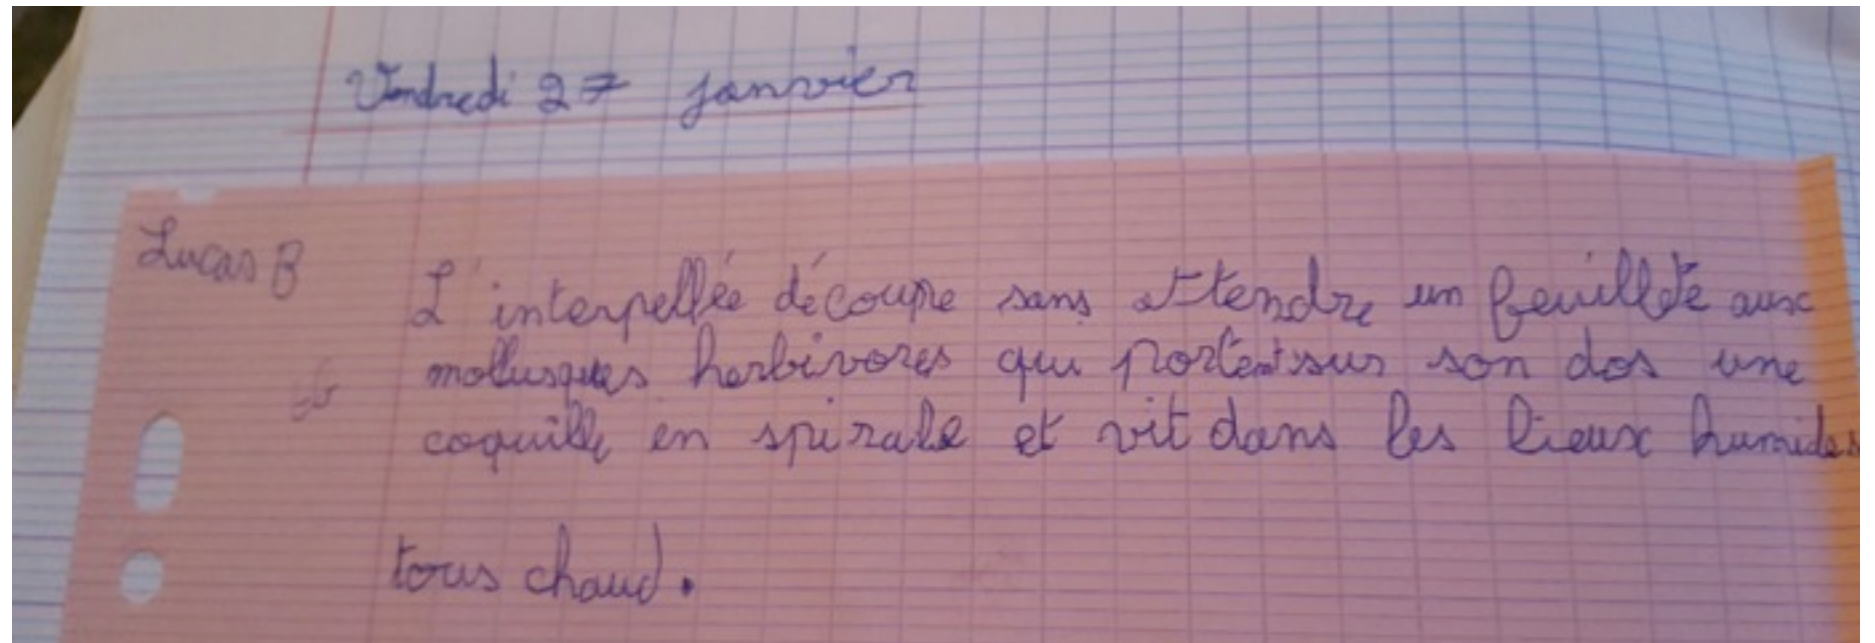 Vendredi 27 janvier
Lucas B
L'interpellée découpe sans attendre un feuilleté aux
mollusques herbivores qui portent sur son dos une
coquille en spirale et vit dans les lieux humides
tous chaud.